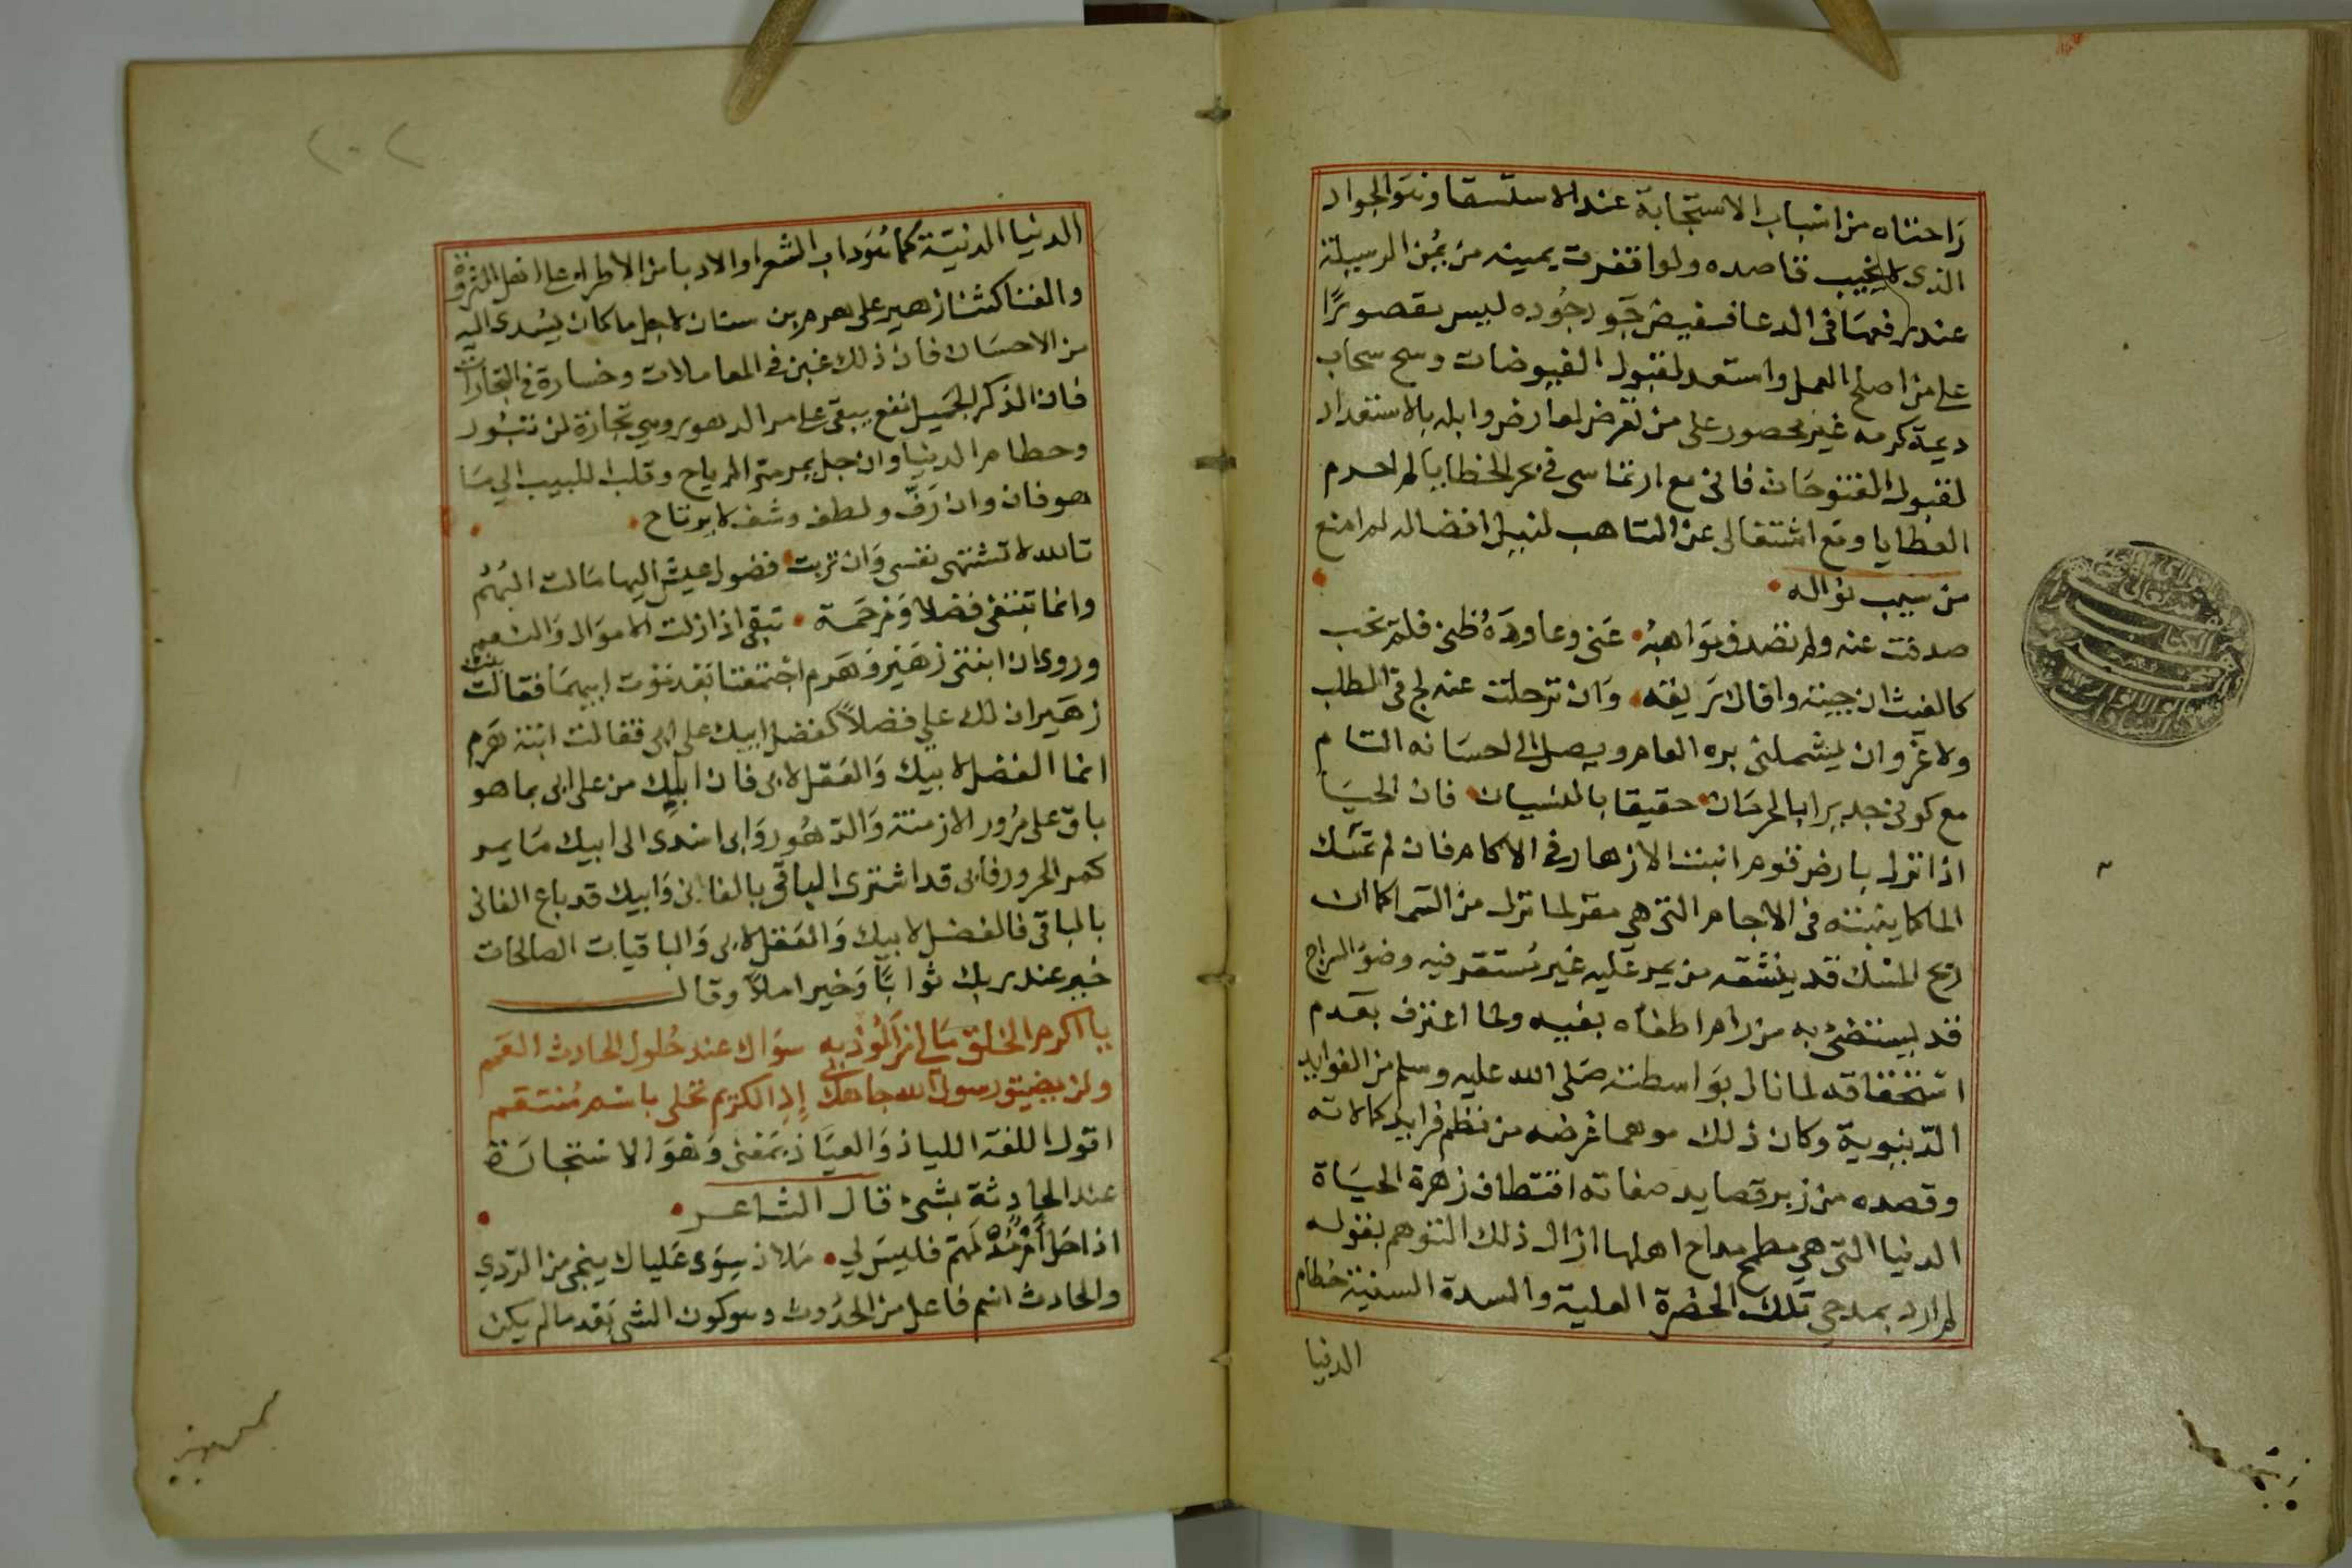 راحتاه من اسباب الاستجابة عند الاستسقا وهو الجواد
الذى لا يخيب قاصده ولو اقفرت يمينه من يمن الوسيلة
عند رفعها فى الدعا ففيض جود جوده ليس مقصورًا
على من اصلح العمل واستعد لقبول الفيوضات وسح سحاب
ديمة كرمه غير محصور على من تعرض لعارض وابله بالاستعداد
لقبول الفتوحات فانى مع ارتماسى فى بحر الخطايا لم احرم
العطايا ومع اشتغالى عن التاهب لنيل افضاله لم امنع
من سيب نواله
صدفت عنه ولم تصدف مواهبه عنى وعاوده ظنى فلم يخب
كالغيث ان جيته وافاك ريقه وان ترحلت عنه لج فى الطلب
ولا غرو ان يشملنى بره العام ويصل الى احسانه التام
مع كونى جديرا بالحرمان حقيقا بالنسيان فان الحيا
اذا نزل بارض قوم انبت الازهار فى الاكام فان لم تمسك
الما كما ينبته فى الاجام التى هى مقر لما نزل من السما كما ان
ريح المسك قد ينشقه من يمر عليه غير مستقر فيه وضو السراج
قد يستضئ به من رام اطفاه بفيه ولما اعترف بعدم
استحقاقه لما نال بواسطته صلى الله عليه وسلم من الفوايد
الدنيوية وكان ذلك موهما غرضه من نظم فرايد كمالاته
وقصده من زبر قصايد صفاته اقتطاف زهرة الحياة
الدنيا التى هى مطمح مداح اهلها ازال ذلك التوهم بقوله
لم ارد بمدحى تلك الحضرة العلية والسدة السنية حطام
الدنيا
٢٠٢
الدنيا الدنية كما هو داب الشعرا والادبا من الاطراء على اهل الثروة
والغنا كثنا زهير على هرم بن سنان لاجل ما كان يسدى اليه
من الاحسان فان ذلك غبن فى المعاملات وخسارة فى التجارات
فان الذكر الجميل نفع يبقى على مر الدهور وهى تجارة لن تبور
وحطام الدنيا وان جل يمر مر الرياح وقلب اللبيب الى ما
هو فان وان رق ولطف وشف لا يرتاح
تالله لا تشتهى نفسى وان تربت فضول عيش اليها مالت البهم
وانما تبتغى فضلا ومرحمة تبقى اذا زلت الاموال والنعم
وروى ان ابنتى زهير وهرم اجتمعتا بعد موت ابيهما فقالت بنت
زهير ان لك على فضلاً كفضل ابيك على ابى فقالت ابنة هرم
انما الفضل لابيك والعقل لابى فان ابيك من على ابى بما هو
باق على مرور الازمنة والدهور وابى اسدى الى ابيك ما يمر
كمر الحرور فابى قد اشترى الباقى بالفانى وابيك قد باع الفانى
بالباقى فالفضل لابيك والعقل لابى والباقيات الصالحات
خير عند ربك ثوابًا وخير املاً وقال
يا اكرم الخلق مالى من الوذ به سواك عند حلول الحادث العمم
ولن يضيق رسول الله جاهك بى إذا الكريم تحلى باسم منتقم
اقول اللغة اللياذ والعياذ بمعنى وهو الاستجارة
عند الحادثة بشئ قال الشاعر
اذا حل أمر ملم فليس لى ملاذ سوى علياك ينجى من الردي
والحادث اسم فاعل من الحدوث وهو كون الشى بعد ما لم يكن